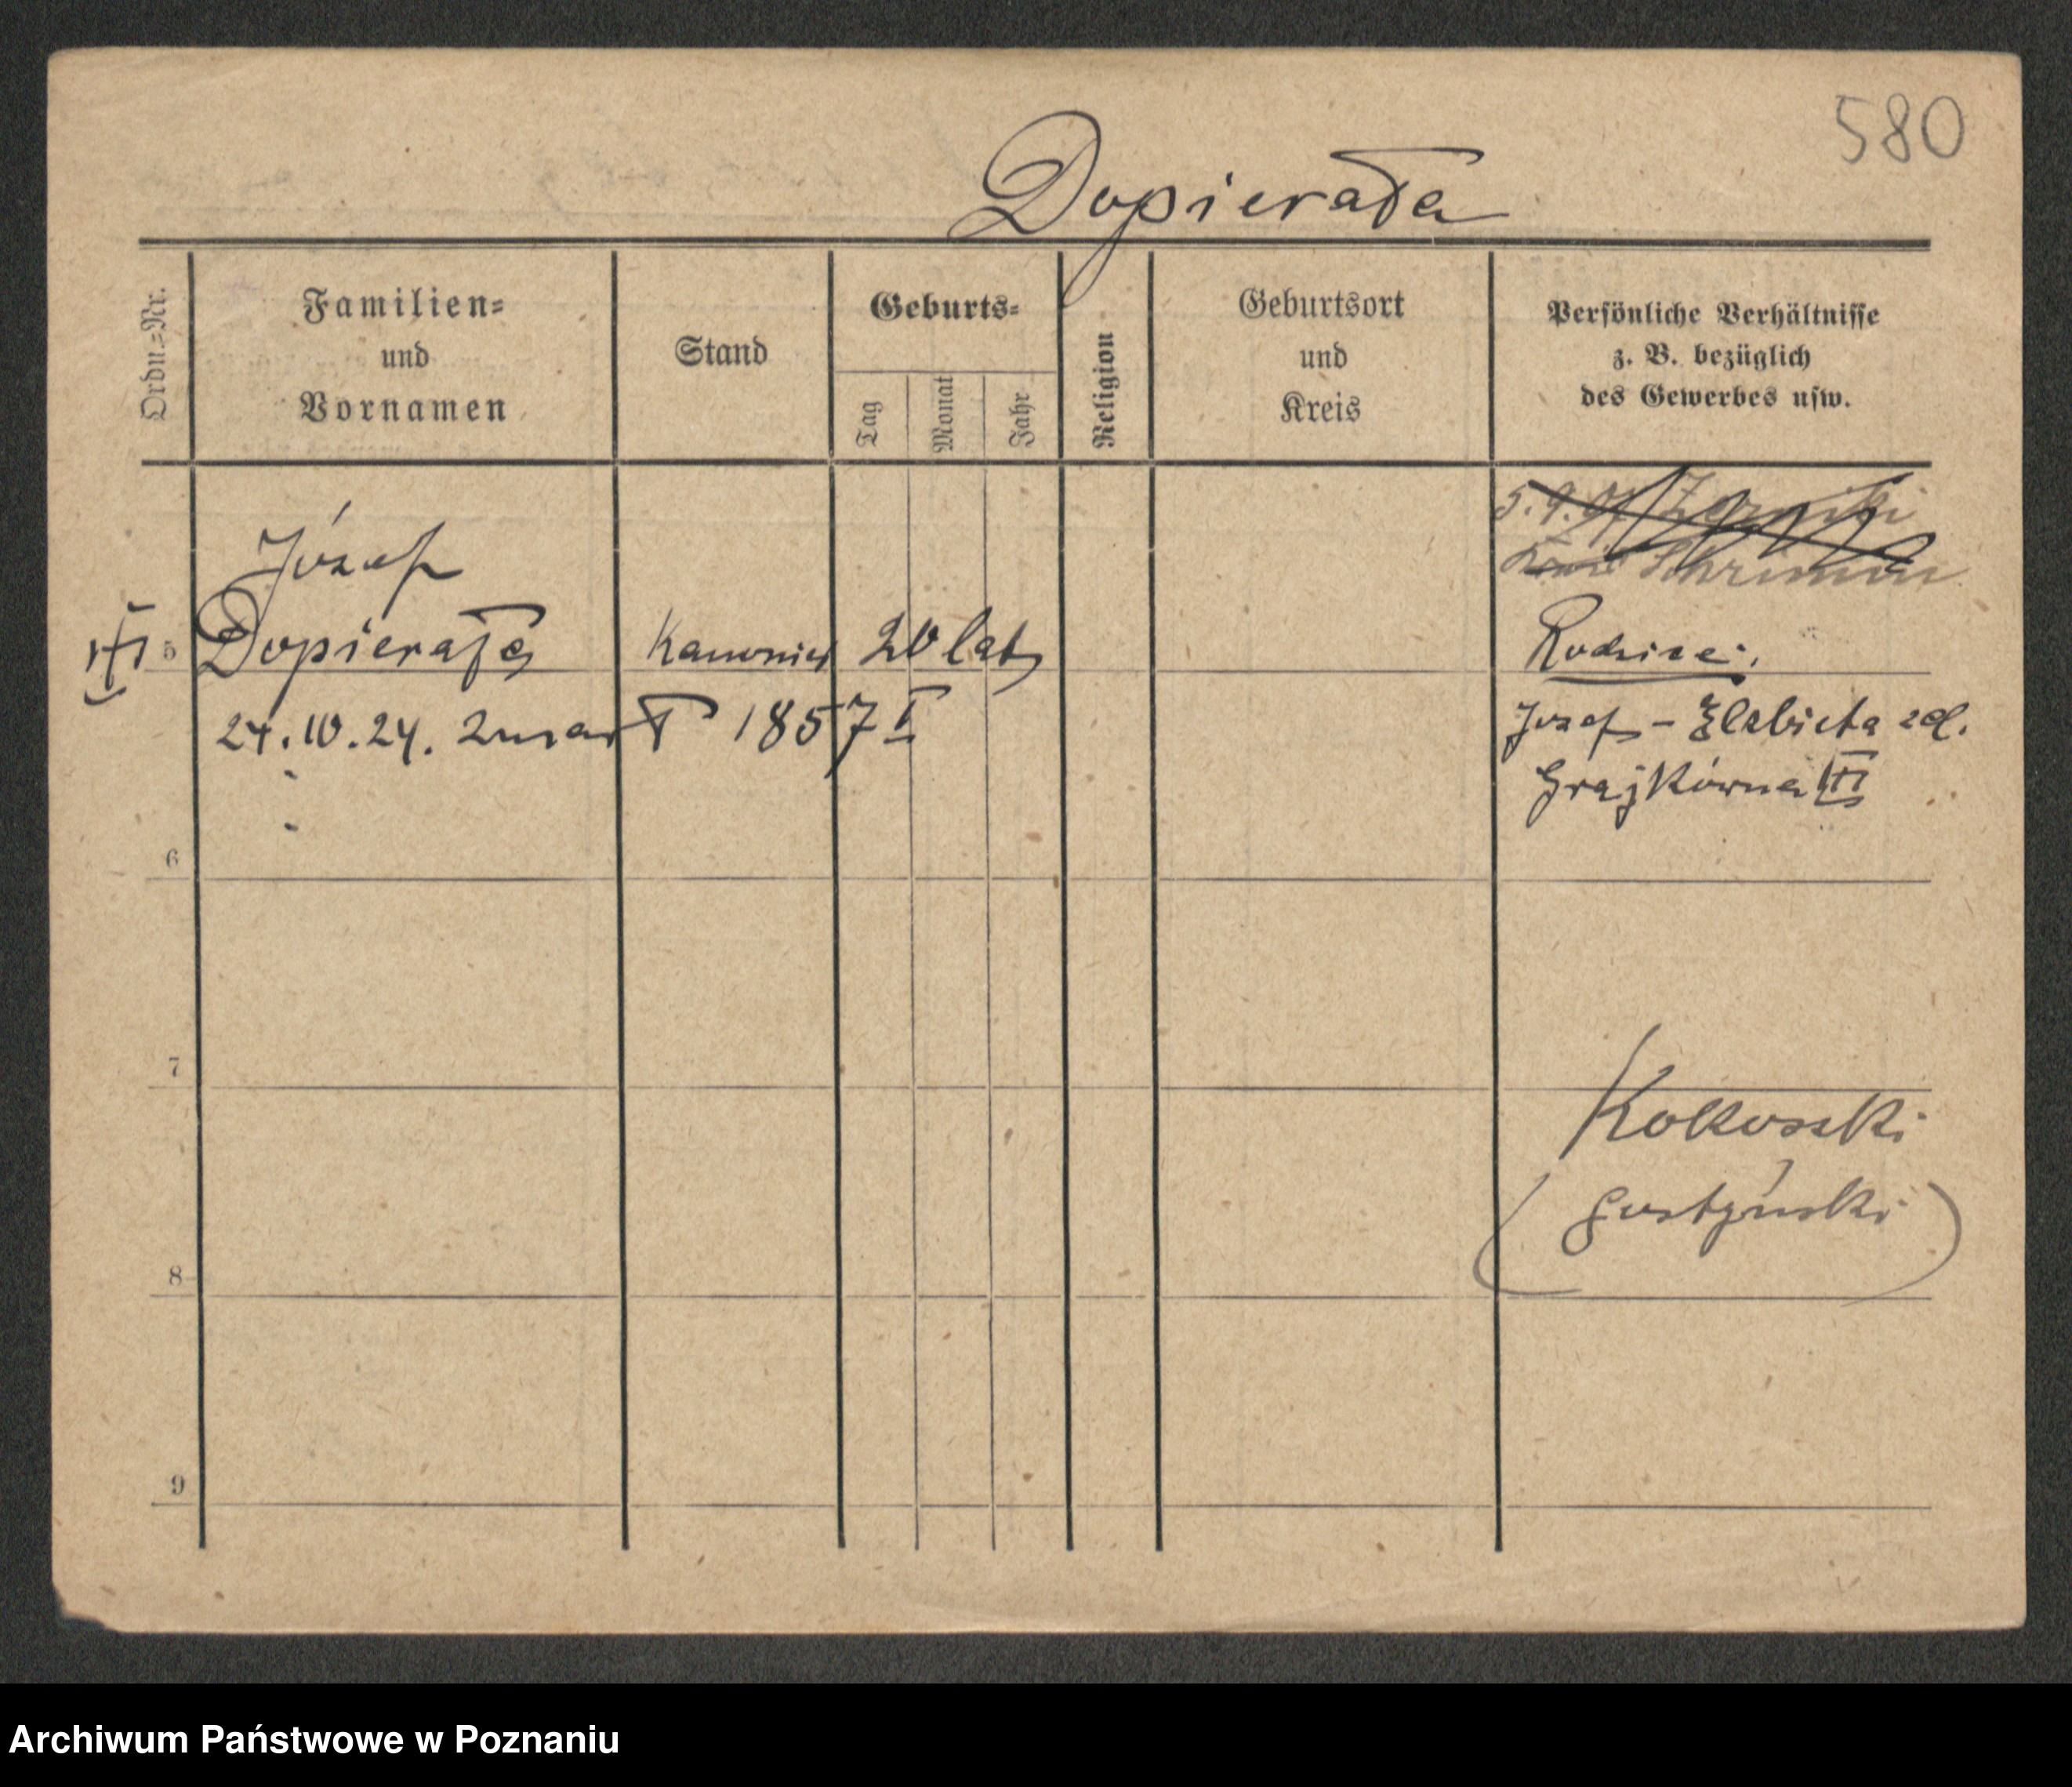 580
Dopierała
Ordn.=Nr.
Familien=
und
Vornamen
Stand
Geburts=
Tag
Monat
Jahr
Religion
Geburtsort
und
Kreis
Persönliche Verhältnisse
z. B. bezüglich
des Gewerbes usw.
5.9.01 Zerniki
Kreis Schrimm
Józef
5 Dopierała Kanonier 20 lat
Rodzice:
24.10.24. zmarł 1857 I
Józef - Elżbieta zd.
Grajkówna III
6
7
Kokoszki
Gostyński
8
9
Archiwum Państwowe w Poznaniu